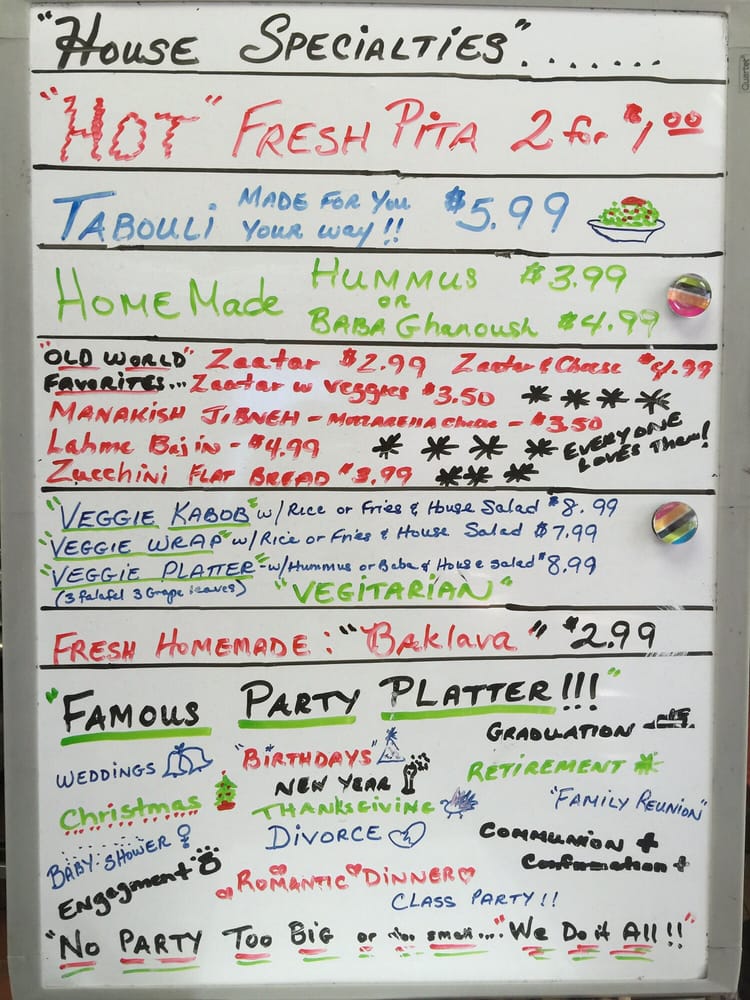 "House Specialties".......
"HOT" FRESH PITA 2 for $1.00
TABOULI MADE FOR YOU YOUR WAY!! $5.99
HOMEMADE HUMMUS $3.99
OR
BABA Ghanoush $4.99
"OLD WORLD" Zaatar $2.99 Zaatar & Cheese $4.99
FAVORITES... Zaatar w Veggies $3.50 * * * *
MANAKISH JIBNEH - MOZZARELLA Cheese - $3.50
Lahme Bajin - $4.99 * * * * EVERYONE LOVES Them!
Zucchini FLAT BREAD $3.99 * * *
"VEGGIE KABOB" w/ Rice or Fries & House Salad $8.99
"VEGGIE WRAP" w/ Rice or Fries & House Salad $7.99
"VEGGIE PLATTER" - w/ Hummus or Baba & House salad $8.99
(3 falafel 3 Grape leaves) "VEGITARIAN"
FRESH HOMEMADE: "Baklava" $2.99
"FAMOUS PARTY PLATTER!!!"
GRADUATION
WEDDINGS "BIRTHDAYS"
NEW YEAR RETIREMENT
Christmas THANKSGIVING "FAMILY REUNION"
BABY SHOWER DIVORCE COMMUNION
Confirmation
ENGAGMENT ROMANTIC DINNER
CLASS PARTY!!
"NO PARTY TOO BIG or too small..." "We Do it All!!"
Quartet